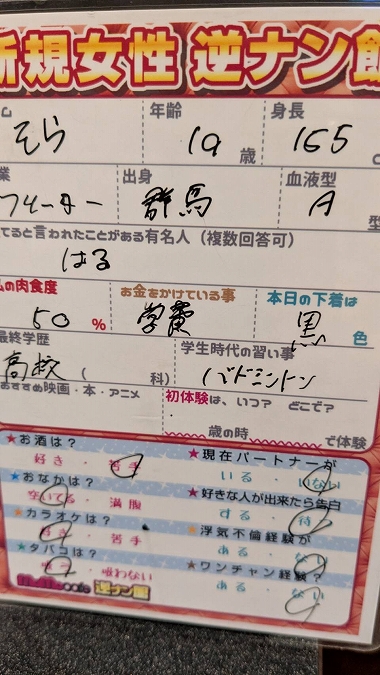 新規女性 逆ナン館
ム 年齢 身長
そら 19 歳 165 c
業 出身 血液型
フリーター 群馬 A 型
てると言われたことがある有名人（複数回答可）
はる
の肉食度 お金をかけている事 本日の下着は
50 % 学費 黒 色
最終学歴 学生時代の習い事
高校（ 科） バドミントン
おすすめ映画・本・アニメ 初体験は、いつ？ どこで？
歳の時 で体験
★お酒は？ ★現在パートナーが
好き・苦手 いる・いない
★おなかは？ ★好きな人が出来たら告白
空いてる・満腹 する・待
★カラオケは？ ★浮気不倫経験が
好き・苦手 ある・ない
★タバコは？ ★ワンチャン経験？
吸う・吸わない ある・ない
cafe 逆ナン館